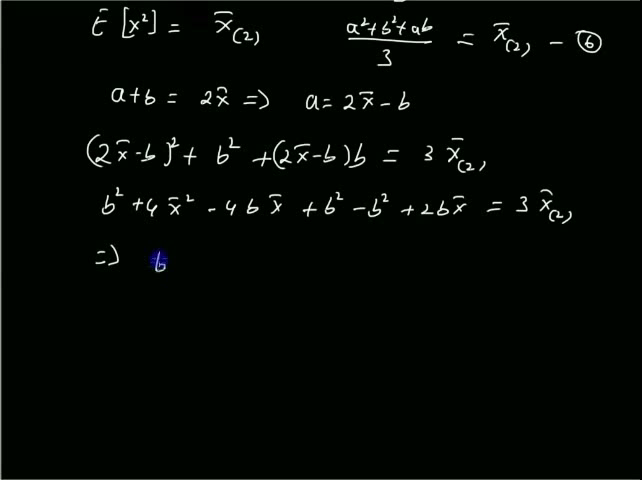 E [x²] = x̄₍₂₎   (a²+b²+ab)/3 = x̄₍₂₎ - ⑥
a+b = 2x̄ => a = 2x̄ - b
(2x̄-b)² + b² + (2x̄-b)b = 3 x̄₍₂₎
b² + 4x̄² - 4bx̄ + b² - b² + 2bx̄ = 3 x̄₍₂₎
=> b